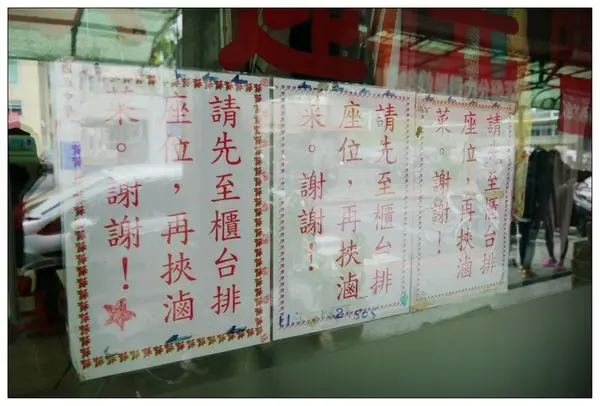 請先至櫃台排
座位，再挾滷
菜。謝謝！
請先至櫃台排
座位，再挾滷
菜。謝謝！
請先至櫃台排
座位，再挾滷
菜。謝謝！